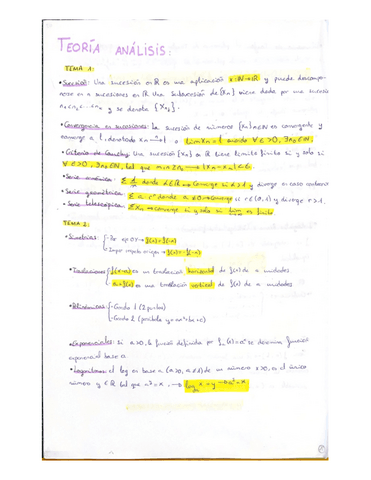 TEORÍA ANÁLISIS:
TEMA 1:
• Sucesión: Una sucesión es ℝ es una aplicación x: ℕ → ℝ y puede descompo-
nerse en n sucesiones en ℝ. Una subsucesión de {Xn} viene dada por una sucesión
n₁<n₂<...<nₙ y se denota {Xnⱼ}.
• Convergencia en sucesiones: La sucesión de números {Xn}n∈ℕ es convergente y
converge a l, denotado xn → l o lim xn = l cuando ∀ε>0, ∃n₀∈ℕ.
• Criterio de Cauchy: Una sucesión {Xn} en ℝ tiene límite finito si y solo si
∀ε>0, ∃n₀∈ℕ, tal que
• Serie armónica: donde α∈ℝ → Converge si α>1 y diverge en caso contrario
• Serie geométrica: donde a≠0 → converge si r∈(0,1) y diverge r>1.
• Serie telescópica: Σ Xn → converge si y solo si lim es finito
TEMA 2:
• Simetrías: - Par eje OY → f(x) = f(-x)
- Impar respecto origen → f(x) = -f(-x)
• Traslaciones: f(x-a) es un traslación horizontal de f(x) de a unidades
a+f(x) es una traslación vertical de f(x) de a unidades
• Polinómicas: - Grado 1 (2 puntos)
- Grado 2 (parábola y=ax²+bx+c)
• Exponenciales: Si a>0, la función definida por f(x)=aˣ se denomina función
exponencial base a.
• Logaritmos: el log en base a (a>0, a≠1) de un número x>0, es el único
número y∈ℝ tal que aʸ=x. → logₐ x = y → aʸ=x